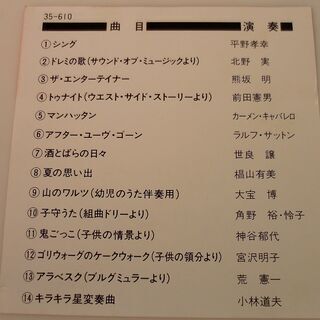 35-610
曲目 演奏
①シング 平野孝幸
②ドレミの歌(サウンド・オブ・ミュージックより) 北野 実
③ザ・エンターテイナー 熊坂 明
④トゥナイト(ウエスト・サイド・ストーリーより) 前田憲男
⑤マンハッタン カーメン・キャバレロ
⑥アフター・ユーヴ・ゴーン ラルフ・サットン
⑦酒とばらの日々 世良 譲
⑧夏の思い出 椙山有美
⑨山のワルツ(幼児のうた伴奏用) 大宝 博
⑩子守うた(組曲ドリーより) 角野 裕・怜子
⑪鬼ごっこ(子供の情景より) 神谷郁代
⑫ゴリウォーグのケークウォーク(子供の領分より) 宮沢明子
⑬アラベスク(ブルグミュラーより) 荒 憲一
⑭キラキラ星変奏曲 小林道夫